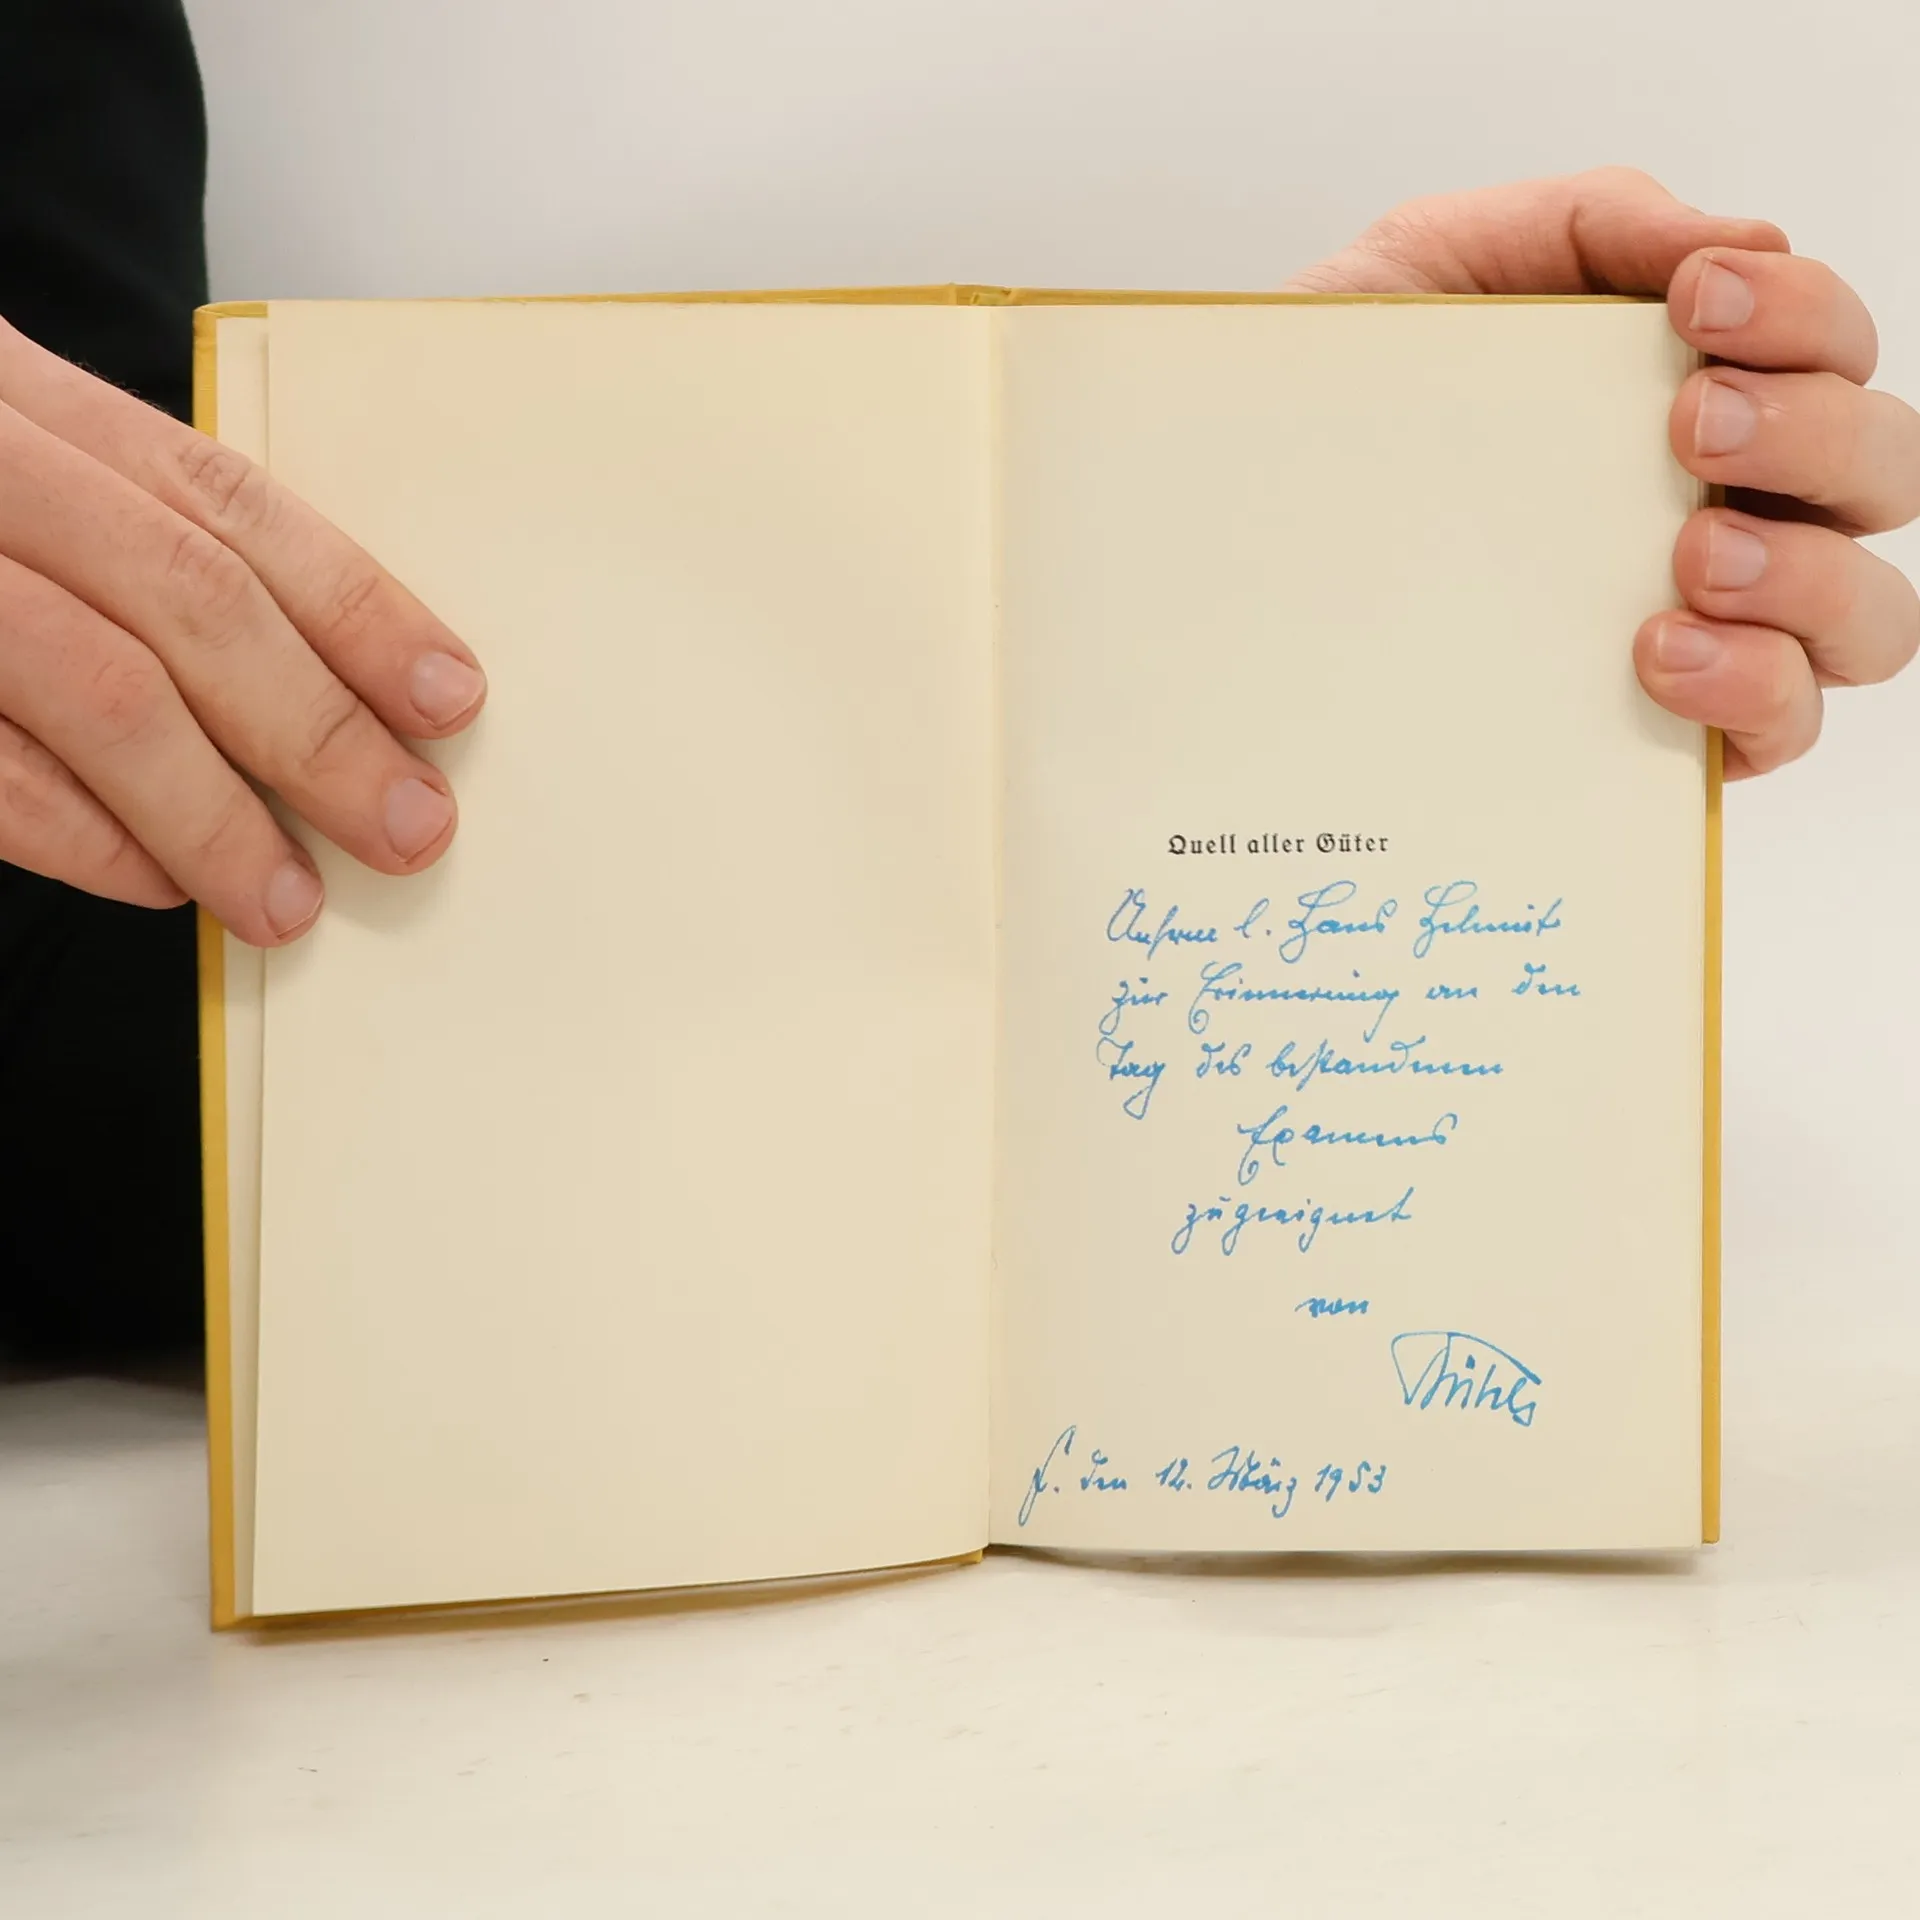 Quell aller Güter
Unserm l. Hans
zur Erinnerung an den
Tag des bestandenen
Examens
zugeeignet
von
den 12. März 1953